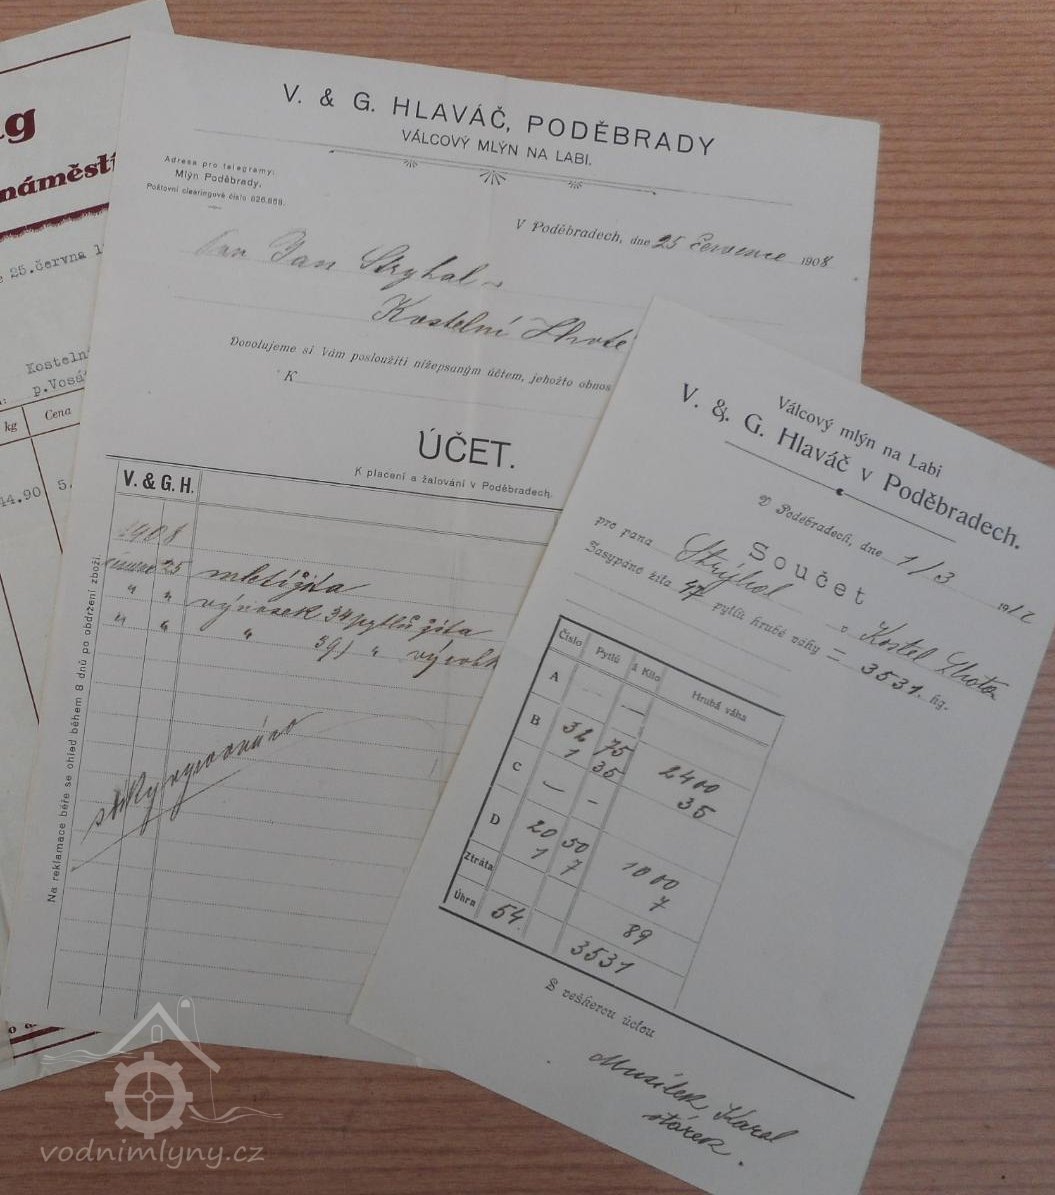 g
náměstí
25.června 1
Kostelní
p.Vosá
kg Cena
14.90 5.
V. & G. HLAVÁČ, PODĚBRADY
VÁLCOVÝ MLÝN NA LABI.
Adresa pro telegramy:
Mlýn Poděbrady.
Poštovní clearingové číslo 826.858.
V Poděbradech, dne 25 července 1908
Pan Jan Stryhal
Kostelní Lhotě
Dovolujeme si Vám posloužiti nížepsaným účtem, jehožto obnos
K
ÚČET.
K placení a žalování v Poděbradech.
V. & G. H.
1908
25 mletí žita
" " výnosek 34 pytlů žita
" " " 39 " výrobk
Na reklamace béře se ohled během 8 dnů po obdržení zboží.
Válcový mlýn na Labi
V. & G. Hlaváč v Poděbradech.
V Poděbradech, dne 1/3 1912
Součet
pro pana Strýhal v Kostel Lhota
Sasypáno žita 47 pytlů hrubé váhy = 3531 kg.
Číslo Pytlů à Kilo Hrubá váha
A — —
B 32 75 2400
1 35 35
C — –
D 20 50 1000
1 7 7
Ztráta 89
Úhrn 54. 3531
S veškerou úctou
Musílek Karel
stárek.
vodnimlyny.cz